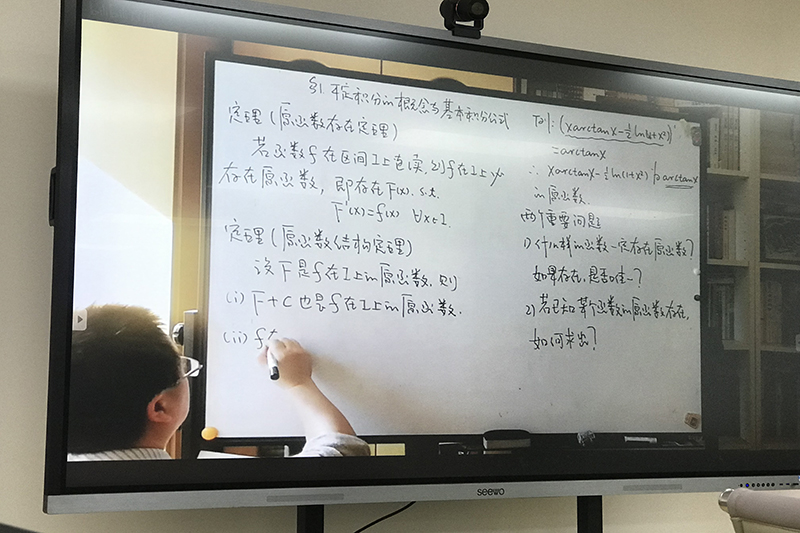 §1 不定积分的概念与基本积分公式
定理(原函数存在定理)
若函数f在区间I上连续,则f在I上必
存在原函数,即存在F(x). s.t.
F'(x)=f(x) ∀x∈I.
定理(原函数结构定理)
设F是f在I上的原函数,则
(i) F+C也是f在I上的原函数.
(ii) f在
(xarctanx-½ln(1+x²))'
=arctanx
∴ xarctanx-½ln(1+x²)为arctanx
的原函数.
两个重要问题
1) 什么样的函数一定存在原函数?
如果存在,是否唯一?
2) 若已知某个函数的原函数存在,
如何求出?
seewo